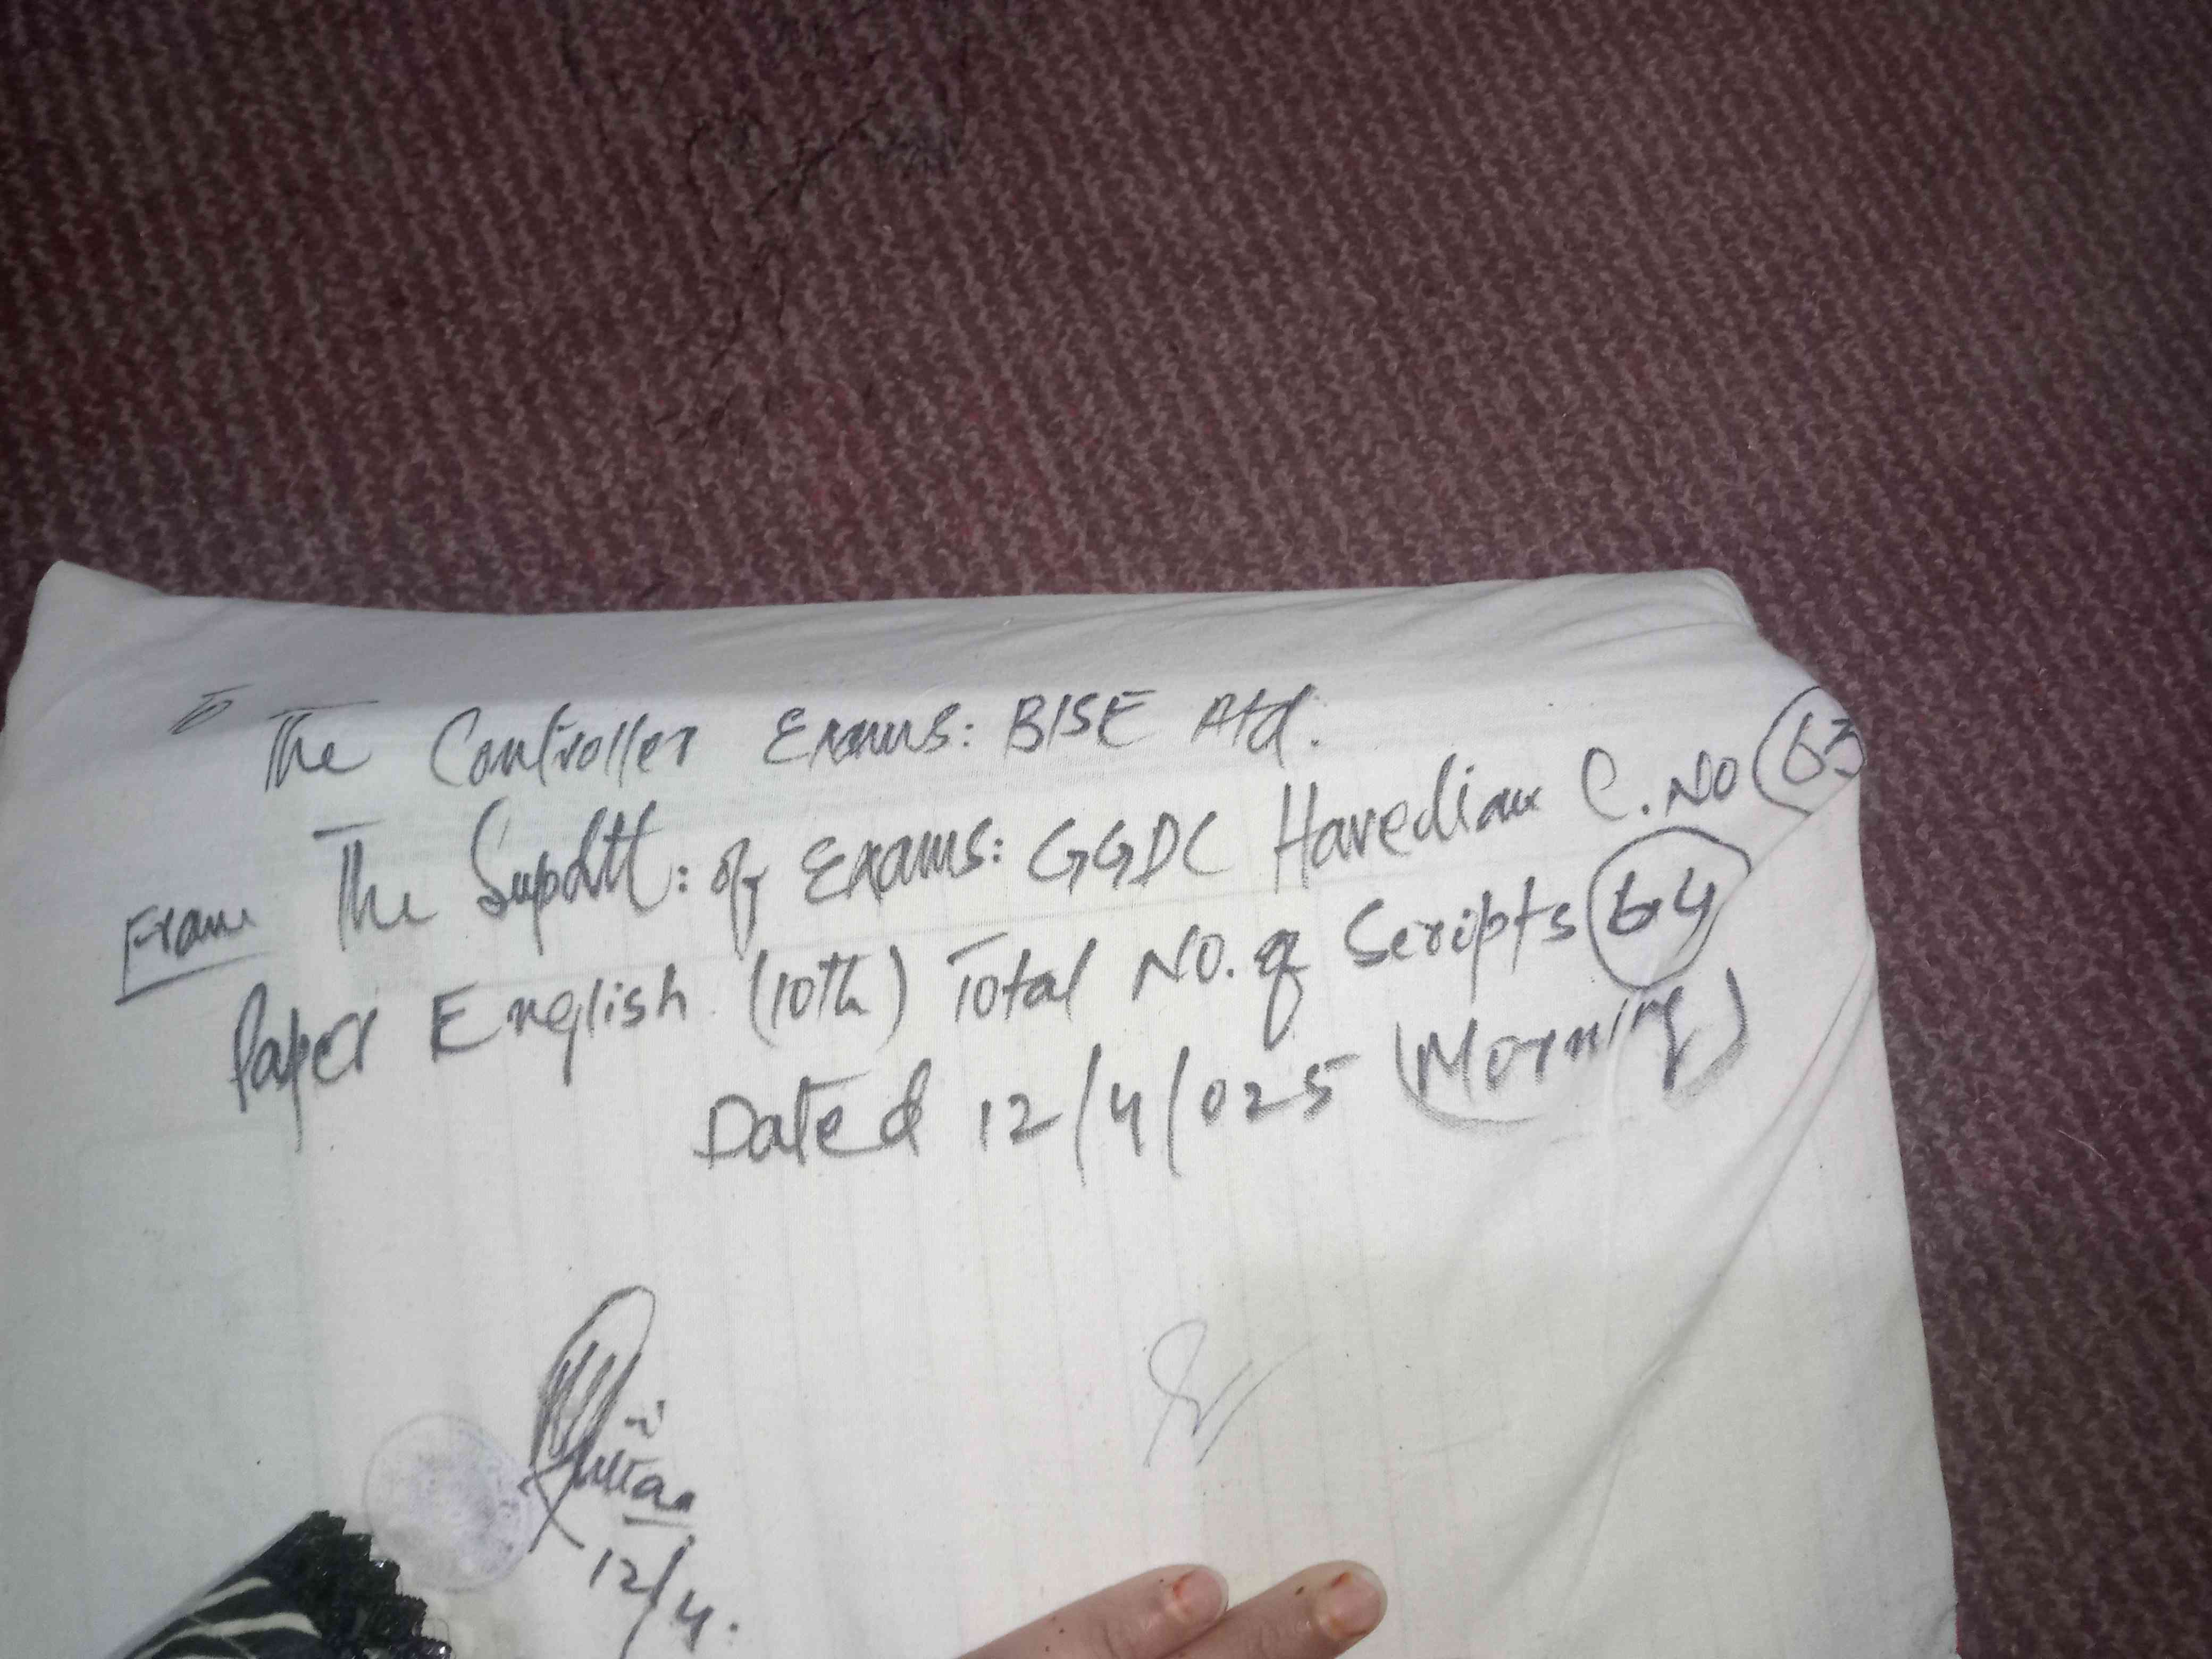 To
The Controller Exams: BISE Atd.
From The Supdtt: of Exams: GGDC Havelian C. No 63
Paper English (10th) Total No. of Scripts 64
Dated 12/4/025 (Morning)
12/4.